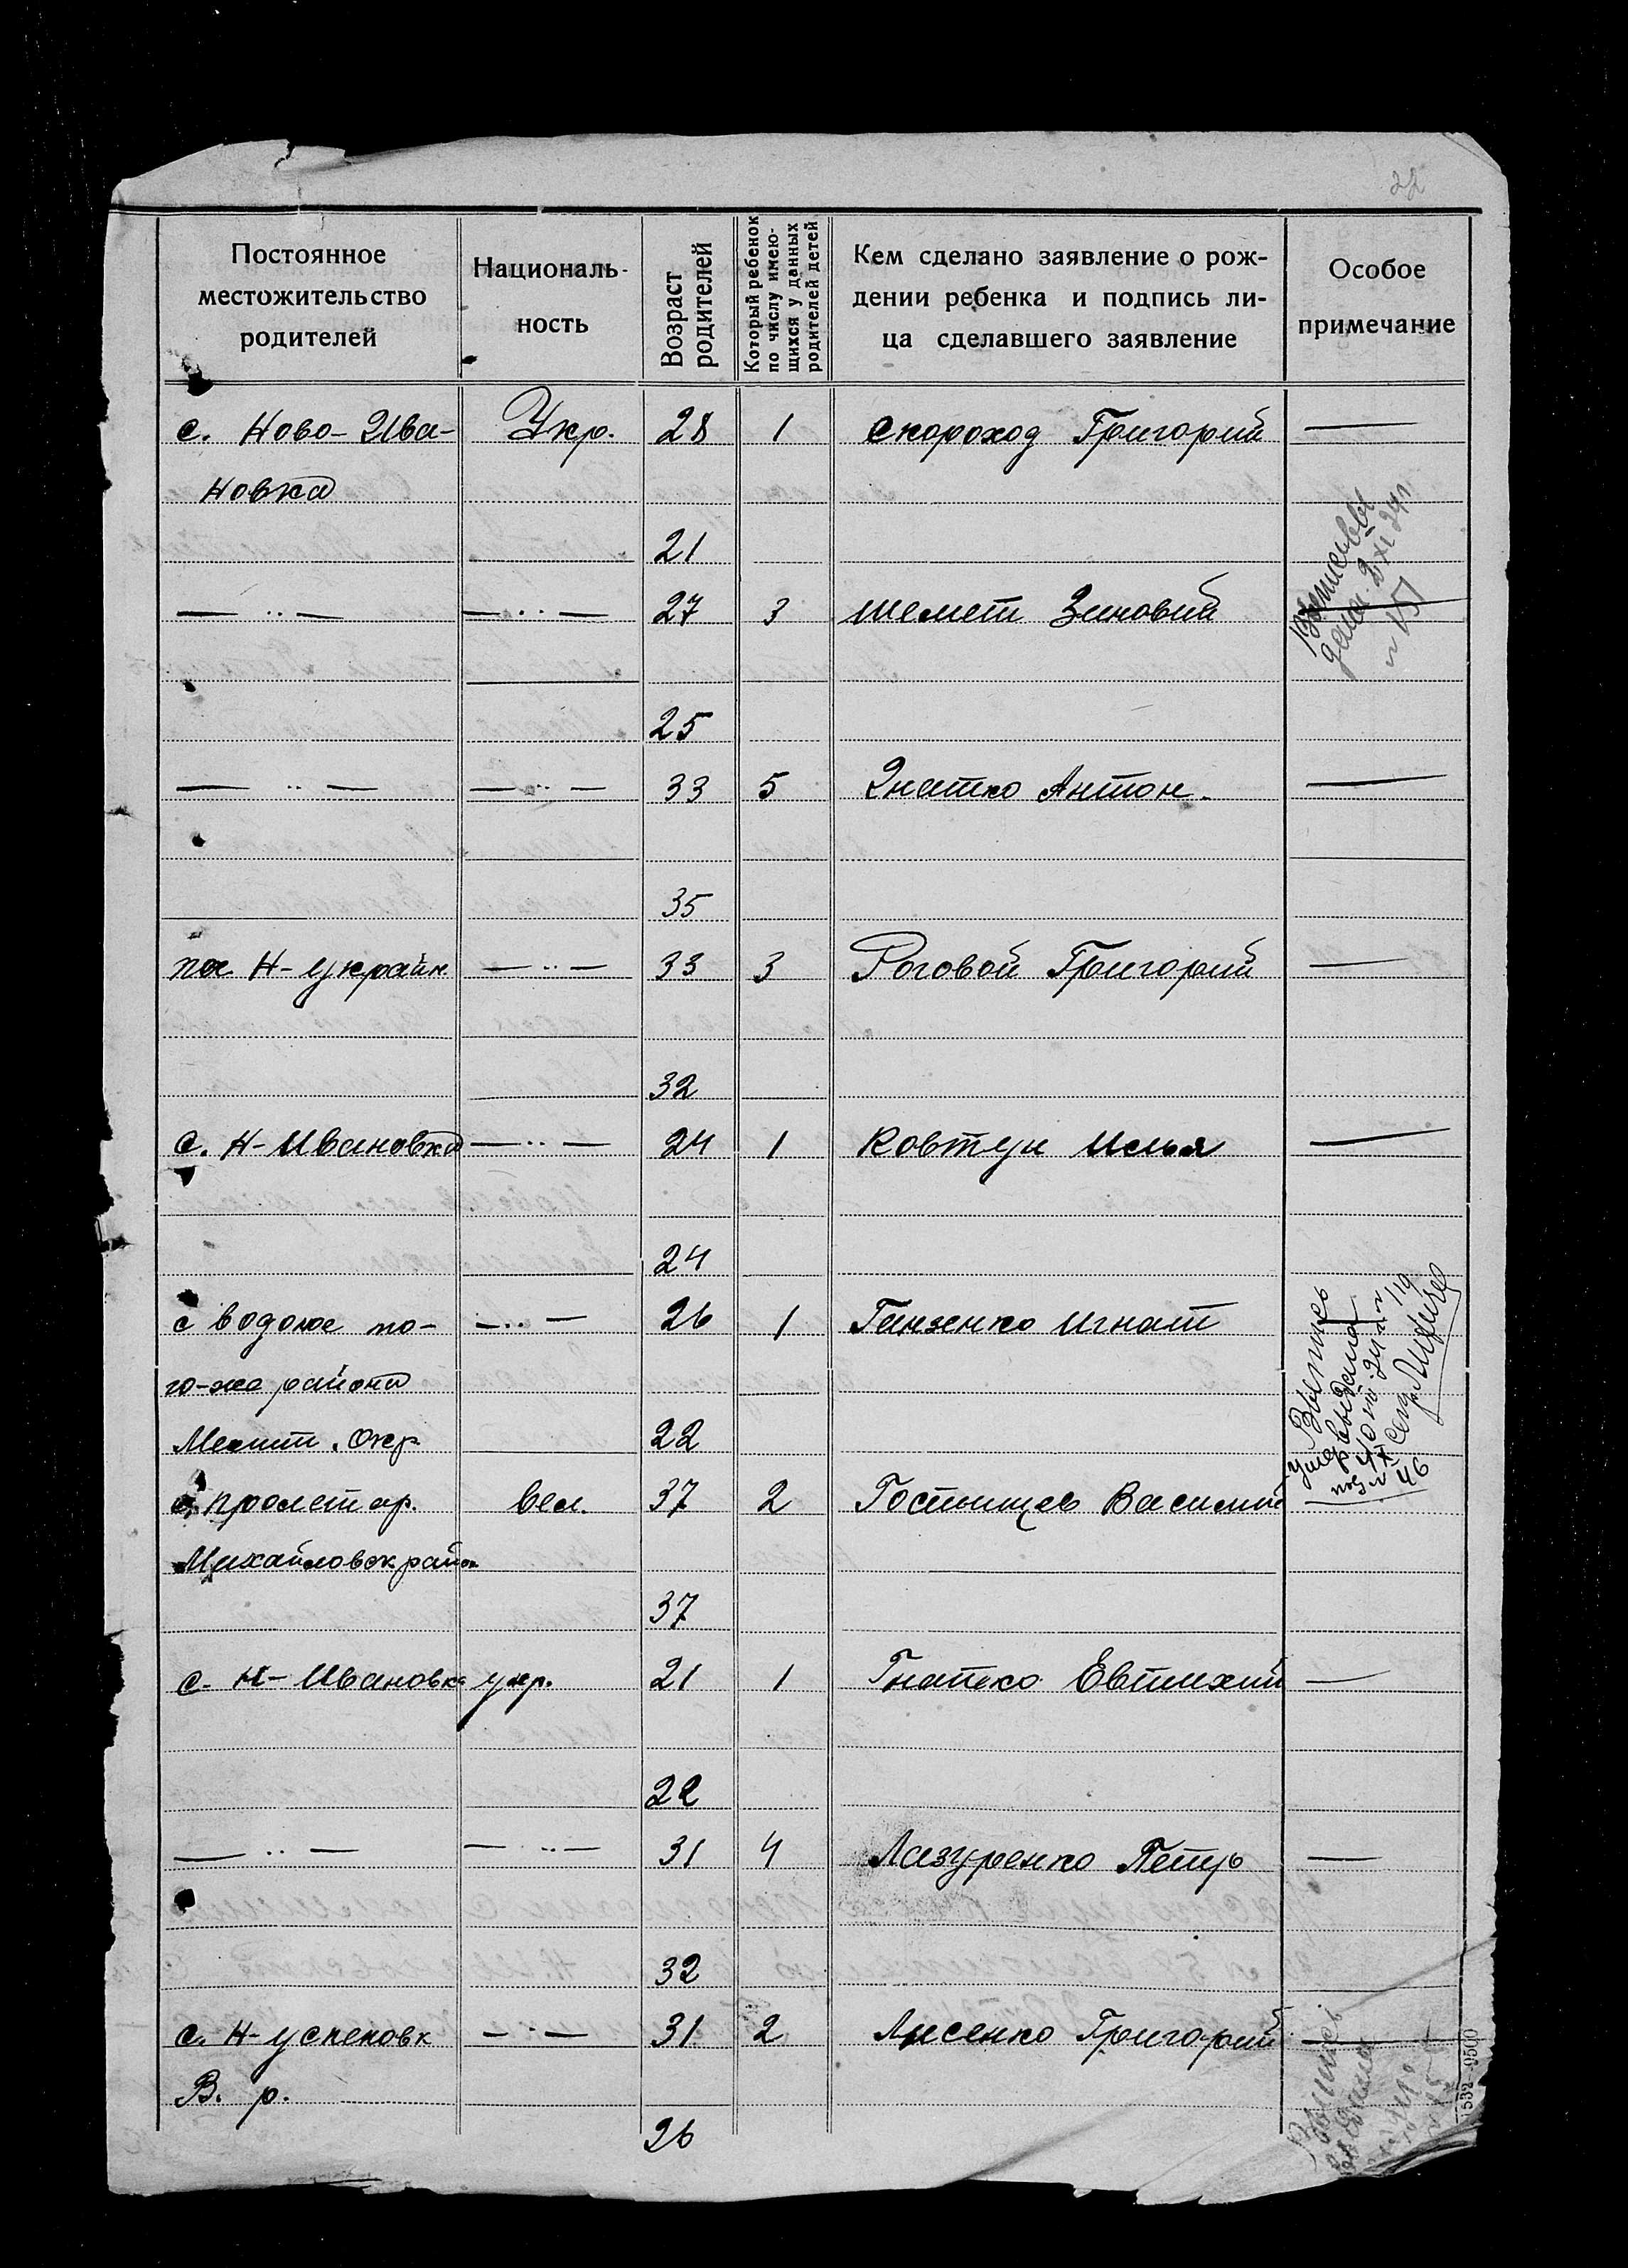 22
Постоянное
местожительство
родителей
Националь-
ность
Возраст
родителей
Который ребенок
по числу имею-
щихся у данных
родителей детей
Кем сделано заявление о рож-
дении ребенка и подпись ли-
ца сделавшего заявление
Особое
примечание
с. Ново-Ива- Укр. 28 1 Скороход Григорий —
новка
21
— ·· — — ·· — 27 3 Шемет Зиновий —
25
— ·· — — ·· — 33 5 Гнатко Антон. —
35
пос Н-украйн — ·· — 33 3 Роговой Григорий —
32
с. Н-Ивановка — ·· — 24 1 Ковтун Илья —
24
с Водоне то- — ·· — 26 1 Ганженко Игнат
го-же района
Мелит. Окр 22
Выпись
46
с. Пролетар. вел. 37 2 Гостищев Василий
Михайловск район
37
с. Н-Ивановка укр. 21 1 Гнатко Евтихий —
22
— ·· — — ·· — 31 4 Лазуренко Петр —
32
с. Н-успеновк — ·· — 31 2 Лисенко Григорий —
В. р.
26
Выпись
выдана
1532—9500